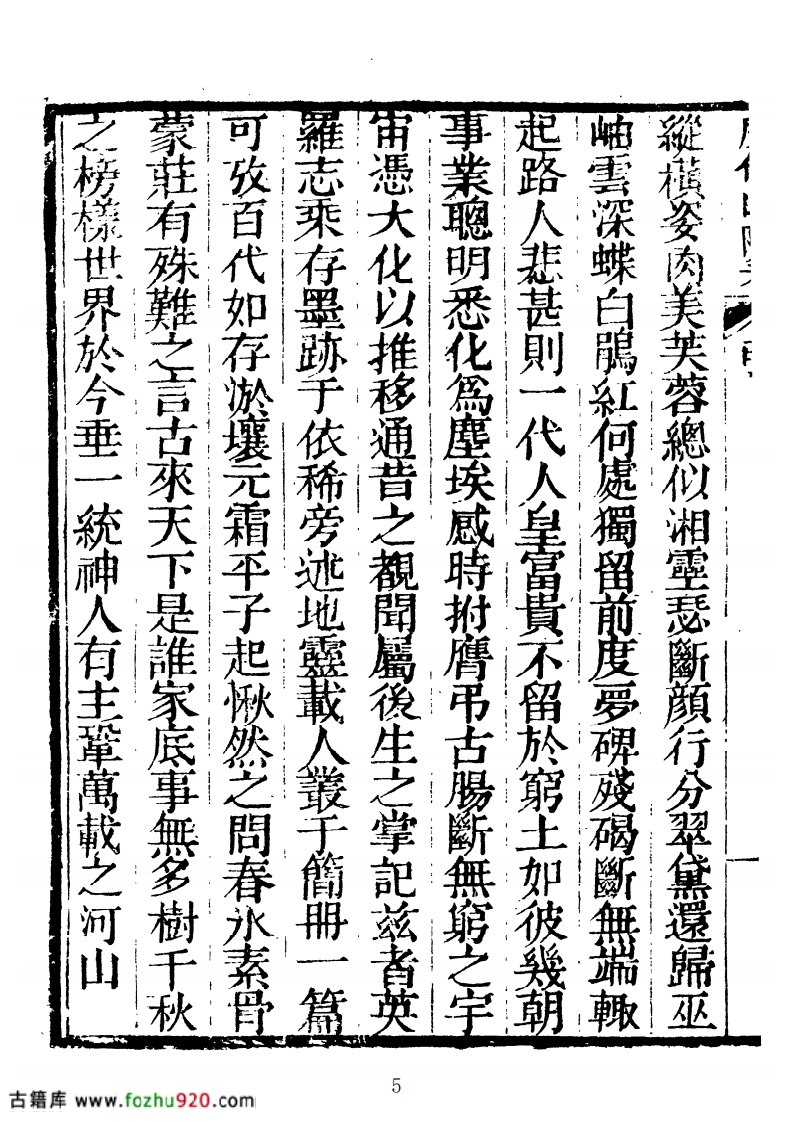 縱橫姿肉美芙蓉總似湘靈瑟斷顔行分翠黛還歸巫
岫雲深蝶白鵑紅何處獨留前度夢碑殘碣斷無端輙
起路人悲甚則一代人皇富貴不留於窮土如彼幾朝
事業聰明悉化爲塵埃感時拊膺弔古腸斷無窮之宇
宙憑大化以推移通昔之覩聞屬後生之掌記兹者英
羅志乘存墨跡于依稀旁述地靈載人叢于簡冊一篇
可攷百代如存淤壤元霜平子起愀然之問春氷素骨
蒙莊有殊難之言古來天下是誰家底事無多樹千秋
之榜樣世界於今垂一統神人有主鞏萬載之河山
5
古籍库 www.fozhu920.com